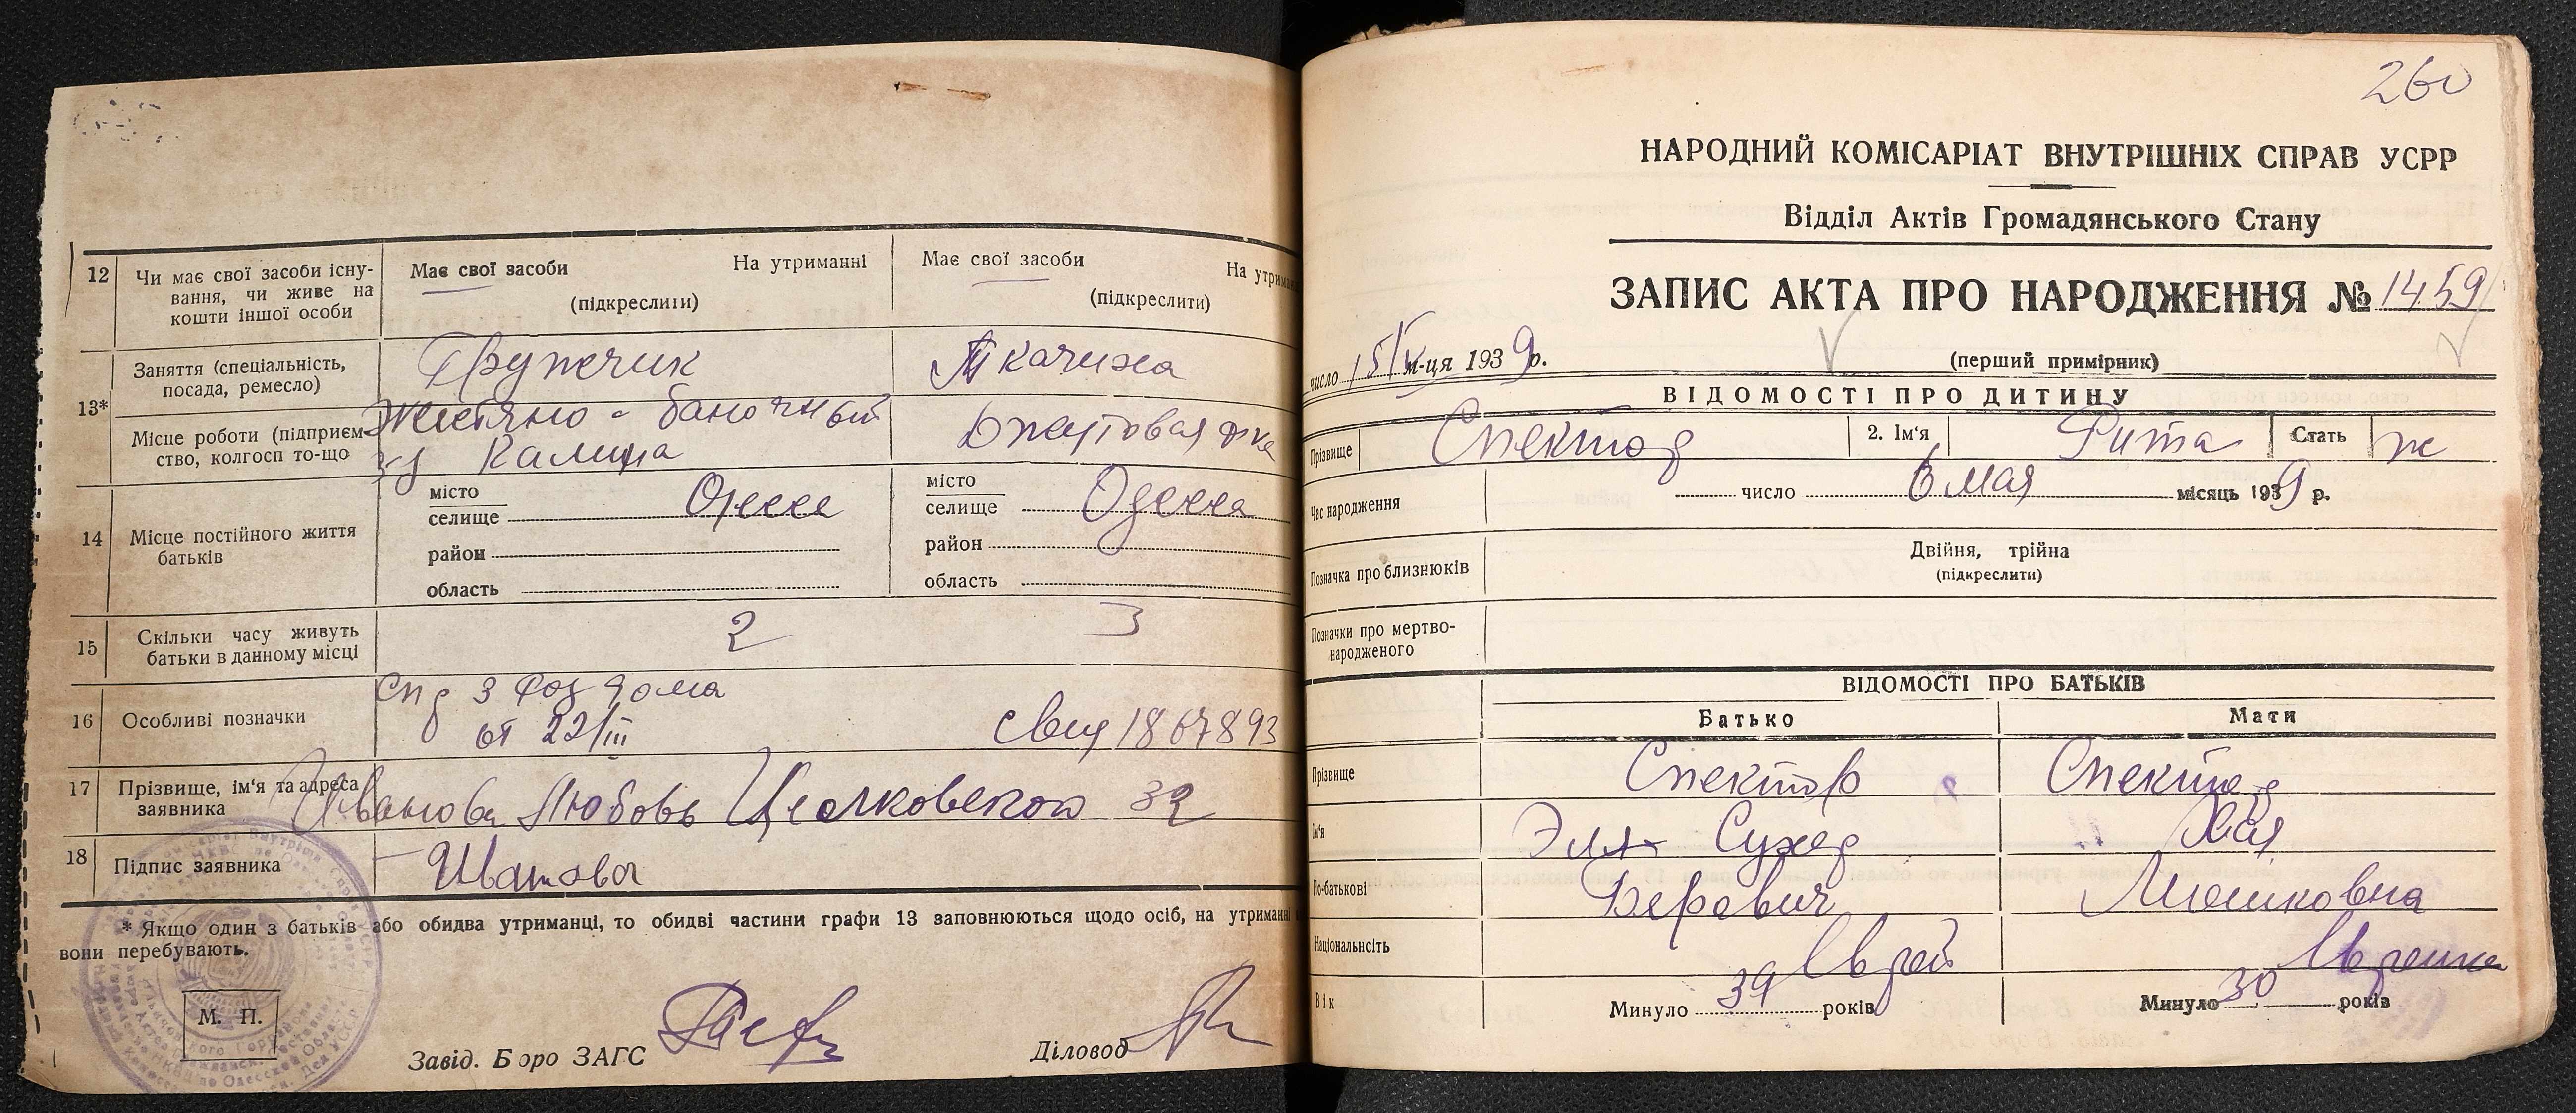 12 Чи має свої засоби існування, чи живе на кошти іншої особи
Має свої засоби На утриманні
(підкреслити)
Має свої засоби На утрима
(підкреслити)
13* Заняття (спеціальність, посада, ремесло)
Грузчик
Ткачиха
Місце роботи (підприємство, колгосп то-що
Жестяно - баночный
з-д Калинина
Джутовая ф-ка
14 Місце постійного життя батьків
місто
селище Одесса
район
область
місто
селище Одесса
район
область
15 Скільки часу живуть батьки в данному місці
2
3
16 Особливі позначки
спр 3 роддома
от 22/III
свид 1867893
17 Прізвище, ім'я та адреса заявника
Иванова Любовь 32
18 Підпис заявника
Иванова
* Якщо один з батьків або обидва утриманці, то обидві частини графи 13 заповнюються щодо осіб, на утриманні
вони перебувають.
М. П.
Завід. Бюро ЗАГС
Діловод
260
НАРОДНИЙ КОМІСАРІАТ ВНУТРІШНІХ СПРАВ УСРР
Відділ Актів Громадянського Стану
ЗАПИС АКТА ПРО НАРОДЖЕННЯ № 1459
число 15/V м-ця 1939 р.
(перший примірник)
ВІДОМОСТІ ПРО ДИТИНУ
Прізвище Спектор 2. Ім'я Рита Стать ж
Час народження число 6 мая місяць 1939 р.
Позначка про близнюків
Двійня, трійна
(підкреслити)
Позначки про мертвонародженого
ВІДОМОСТІ ПРО БАТЬКІВ
Батько Мати
Прізвище Спектор Спектор
Ім'я Эля Сухер Хая
По-батькові Берович Мошковна
Національність Еврей Еврейка
Вік Минуло 39 років Минуло 30 років